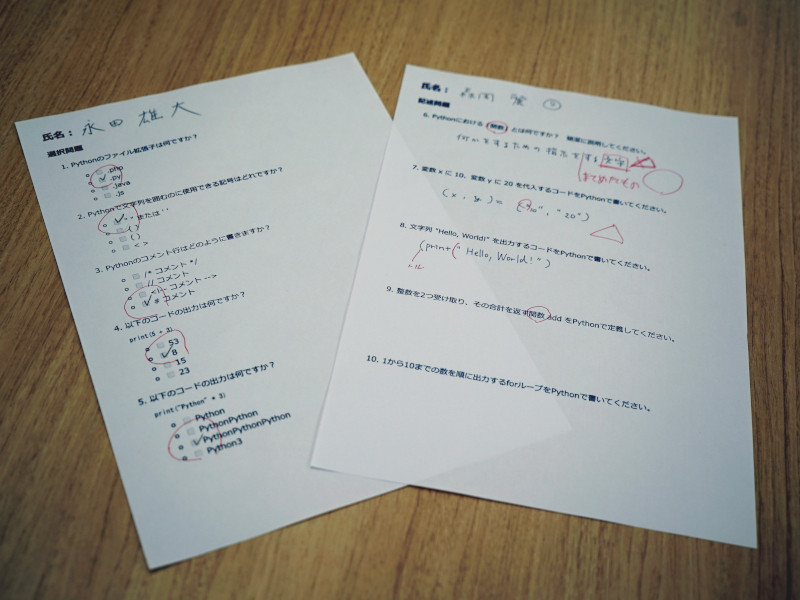 氏名： 永田 雄大
選択問題
1. Pythonのファイル拡張子は何ですか？
.php
.py
.java
.js
2. Pythonで文字列を囲むのに使用できる記号はどれですか？
" " または ' '
{ }
( )
< >
3. Pythonのコメント行はどのように書きますか？
/* コメント */
// コメント
<!-- コメント -->
# コメント
4. 以下のコードの出力は何ですか？
print(5 + 3)
53
8
15
23
5. 以下のコードの出力は何ですか？
print("Python" * 3)
Python
PythonPython
PythonPythonPython
Python3
氏名：
記述問題
6. Pythonにおける「関数」とは何ですか？ 簡潔に説明してください。
何かをするための 指示をする
まとめたもの
7. 変数 x に 10、変数 y に 20 を代入するコードをPythonで書いてください。
(x , y) = ("10", "20")
8. 文字列 "Hello, World!" を出力するコードをPythonで書いてください。
(print(" Hello, World!")
9. 整数を2つ受け取り、その合計を返す関数 add をPythonで定義してください。
10. 1から10までの数を順に出力するforループをPythonで書いてください。